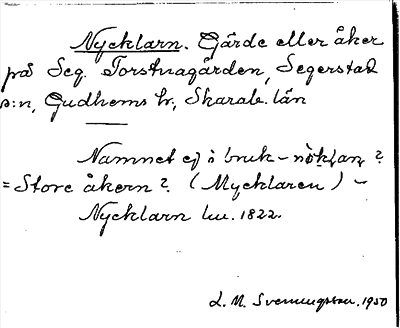 Nycklarn. Gärde eller åker
på Seg. Torstnagården, Segerstad
s:n, Gudhems hr, Skarab. län
Namnet ej i bruk - ?
= Store åkern? (Mycklaren) -
Nycklarn lu. 1822.
L. M. Svenungsson. 1930